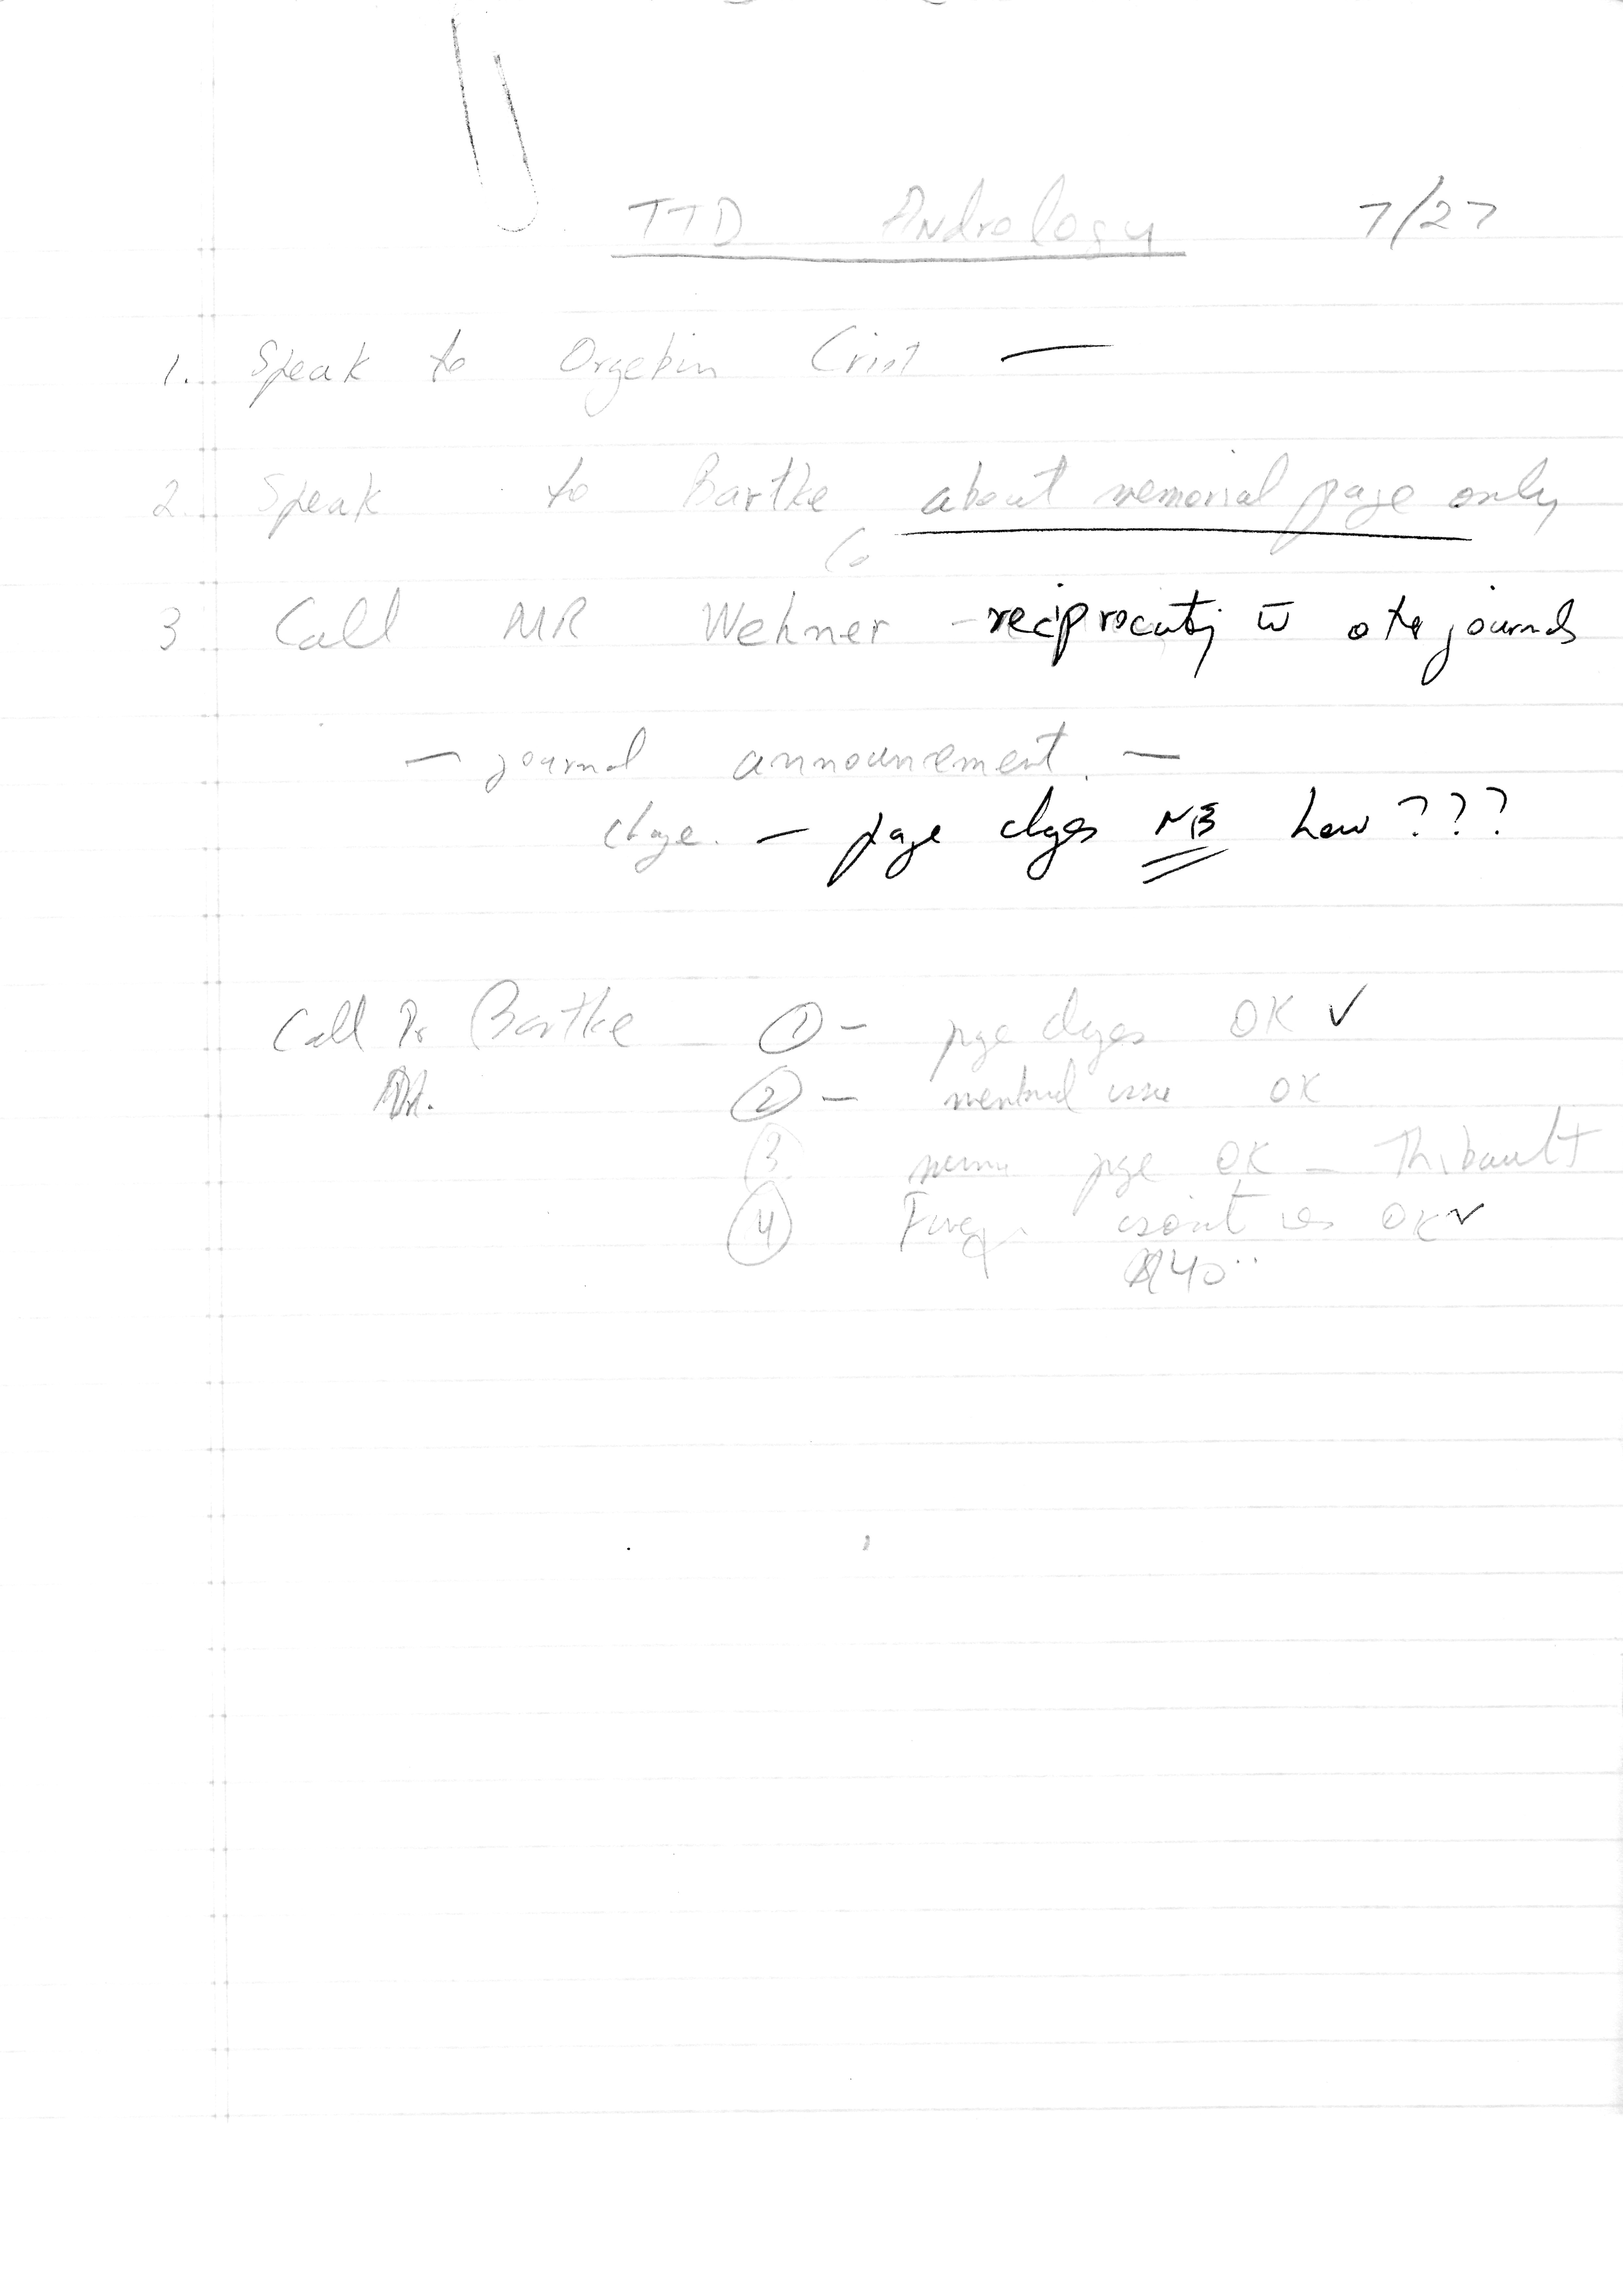 TTD Andrology 7/27
1. Speak to Orgebin Crist —
2. Speak to Bartke about memorial page only
3 Call MR Wehner - reciprocity w̄ other journals
— journal announcement. —
chge. — page chges NB how ???
Call Dr Bartke - ① - page chges OK ✓
② - issue OK
③ page OK - Thibault
④ OK ✓
$40